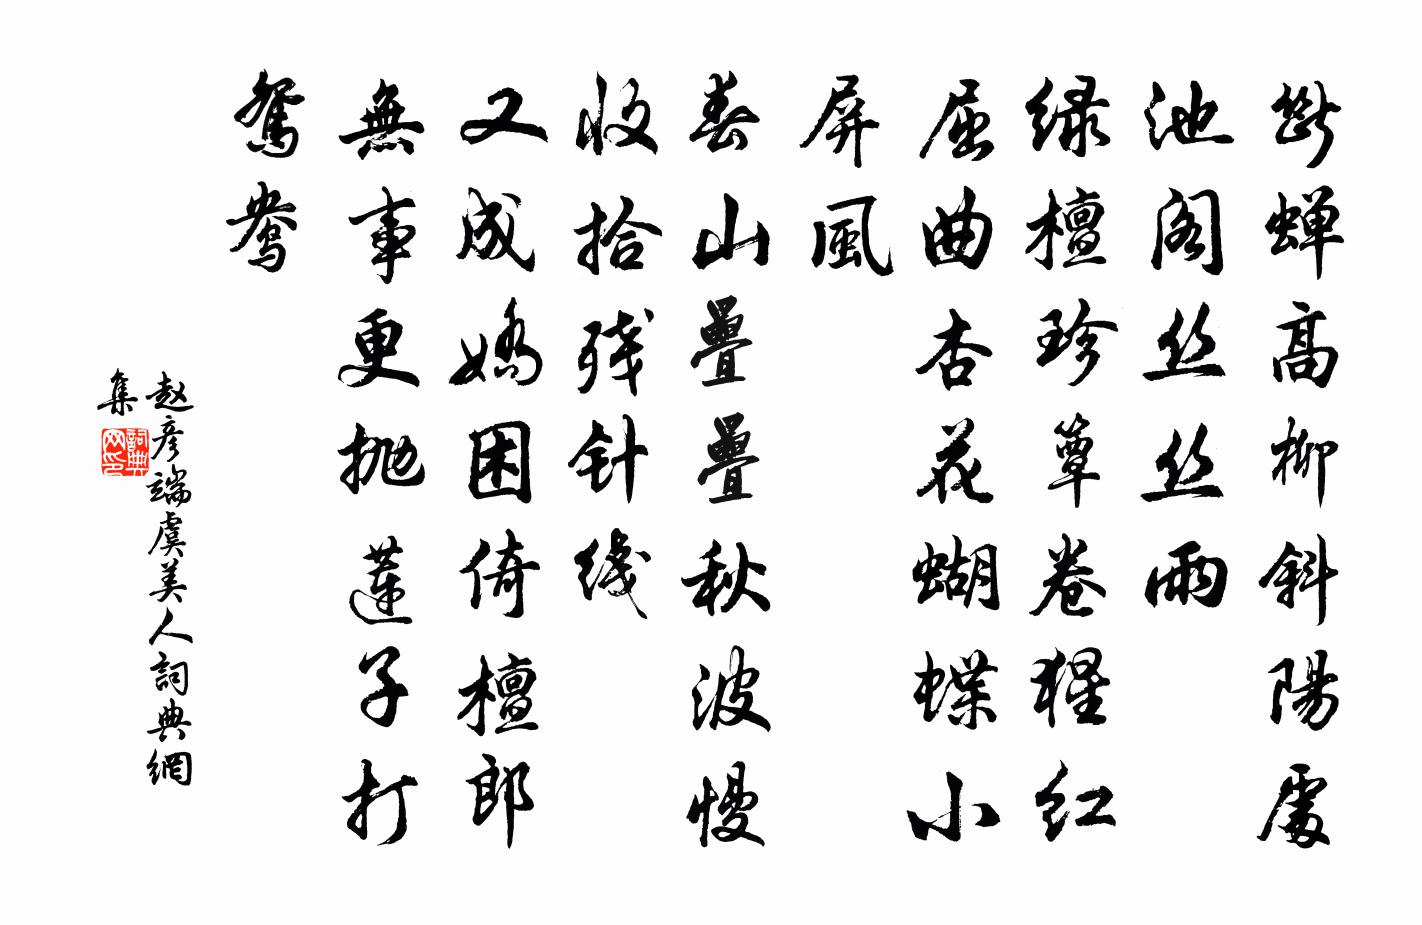 斷蝉高柳斜陽處
池阁丝丝雨
绿檀珍簟卷猩红
屈曲杏花蝴蝶小
屏風
春山疊疊秋波慢
收拾残针线
又成娇困倚檀郎
無事更抛蓮子打
鸳鸯
赵彦端虞美人詞典網
集
詞典网印